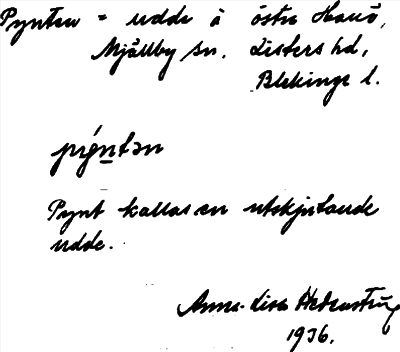 Pynten = udde å östra Hanö,
Mjällby sn. Listers hd,
Blekinge l.
pýntən
Pynt kallas en utskjutande
udde.
Anna-Lisa
1936.